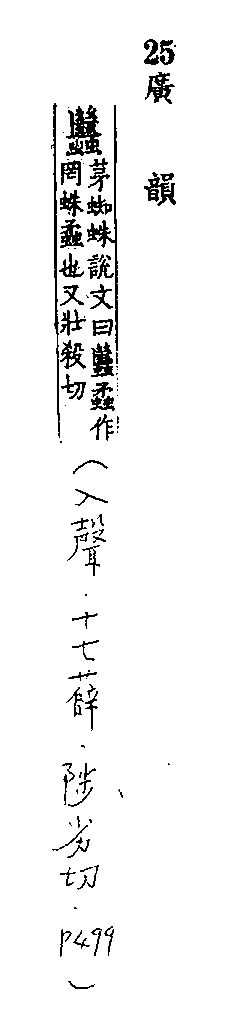 25 廣韻
蠿
茅蜘蛛說文曰蠿蟊作
罔蛛蟊也又壯殺切
(入聲.十七薛.陟劣切.P499)